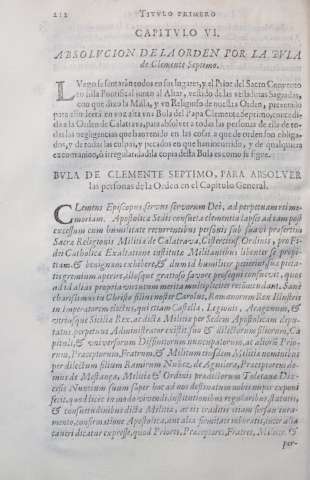 212 TITVLO PRIMERO
CAPITVLO VI.
ABSOLVCION DE LA ORDEN POR LA BVLA
de Clemente Septimo.
LVego se sentarán todos en sus lugares, y el Prior del Sacro Conuento
en silla junto al Altar, vestido de las vestiduras Sagradas,
con que dixo la Missa, y vn Religioso de nuestra Orden,
leerá en voz alta vna Bula del Papa Clemente Septimo, concedida
a la Orden de Calatraua, para absoluer a todas las personas de ella de todas
las negligencias que han tenido en las cosas a que de orden son obligados,
y de todas las culpas, y pecados en que han incurrido, y de qualquiera
excomunion, ò irregularidad: la copia desta Bula es como se sigue.
BVLA DE CLEMENTE SEPTIMO, PARA ABSOLVER
las personas de la Orden en el Capitulo General.
CLemens Episcopus seruus seruorum Dei, ad perpetuam rei memoriam.
Apostolicæ Sedis consueta clementia lapsis ad eam post
excessum cum humilitate recurrentibus personis sub suaui præsertim
Sacræ Religionis Militiæ de Calatraua, Cisterciensis Ordinis, pro Fidei
Catholicæ Exaltatione institutæ Militantibus libenter se propitiam,
& benignam exhibere, & dum id humiliter petitur,
gremium aperire, illosque gratioso fauore prosequi consueuit, quos
ad id alias propria virtutum merita multipliciter recomendant. Sane
charissimus in Christo filius noster Carolus, Romanorum Rex Illustris
in Imperatorem electus, qui etiam Castellæ, Legionis, Aragonum, &
vtriusque Siciliæ Rex, ac dictæ Militiæ per Sedem Apostolicam deputatus
perpetuus Administrator existit suo, & dilectorum filiorum, Capituli,
& vniuersorum Diffinitorum nuncupatorum, ac aliorum Priorum,
Præceptorum, Fratrum, & Militum eiusdem Militiæ nominibus
per dilectum filium Ramirum Nuñez, de Aguilera, Præceptorem domus
de Mestanga, Militiæ & Ordinis prædictorum Toletanæ Diœcesis
Nuntium suum super hoc ad nos destinatum nobis nuper exponi
fecit, quod licet in modo viuendi, institutionibus regularibus, statutis,
& consuetudinibus dictæ Militiæ, ac eis traditis etiam forsan iuramento,
confirmatione Apostolica, aut alia firmitate roboratis, inter alia
caueri dicatur expresse, quod Priores, Præceptores, Fratres, Milites, &
per-